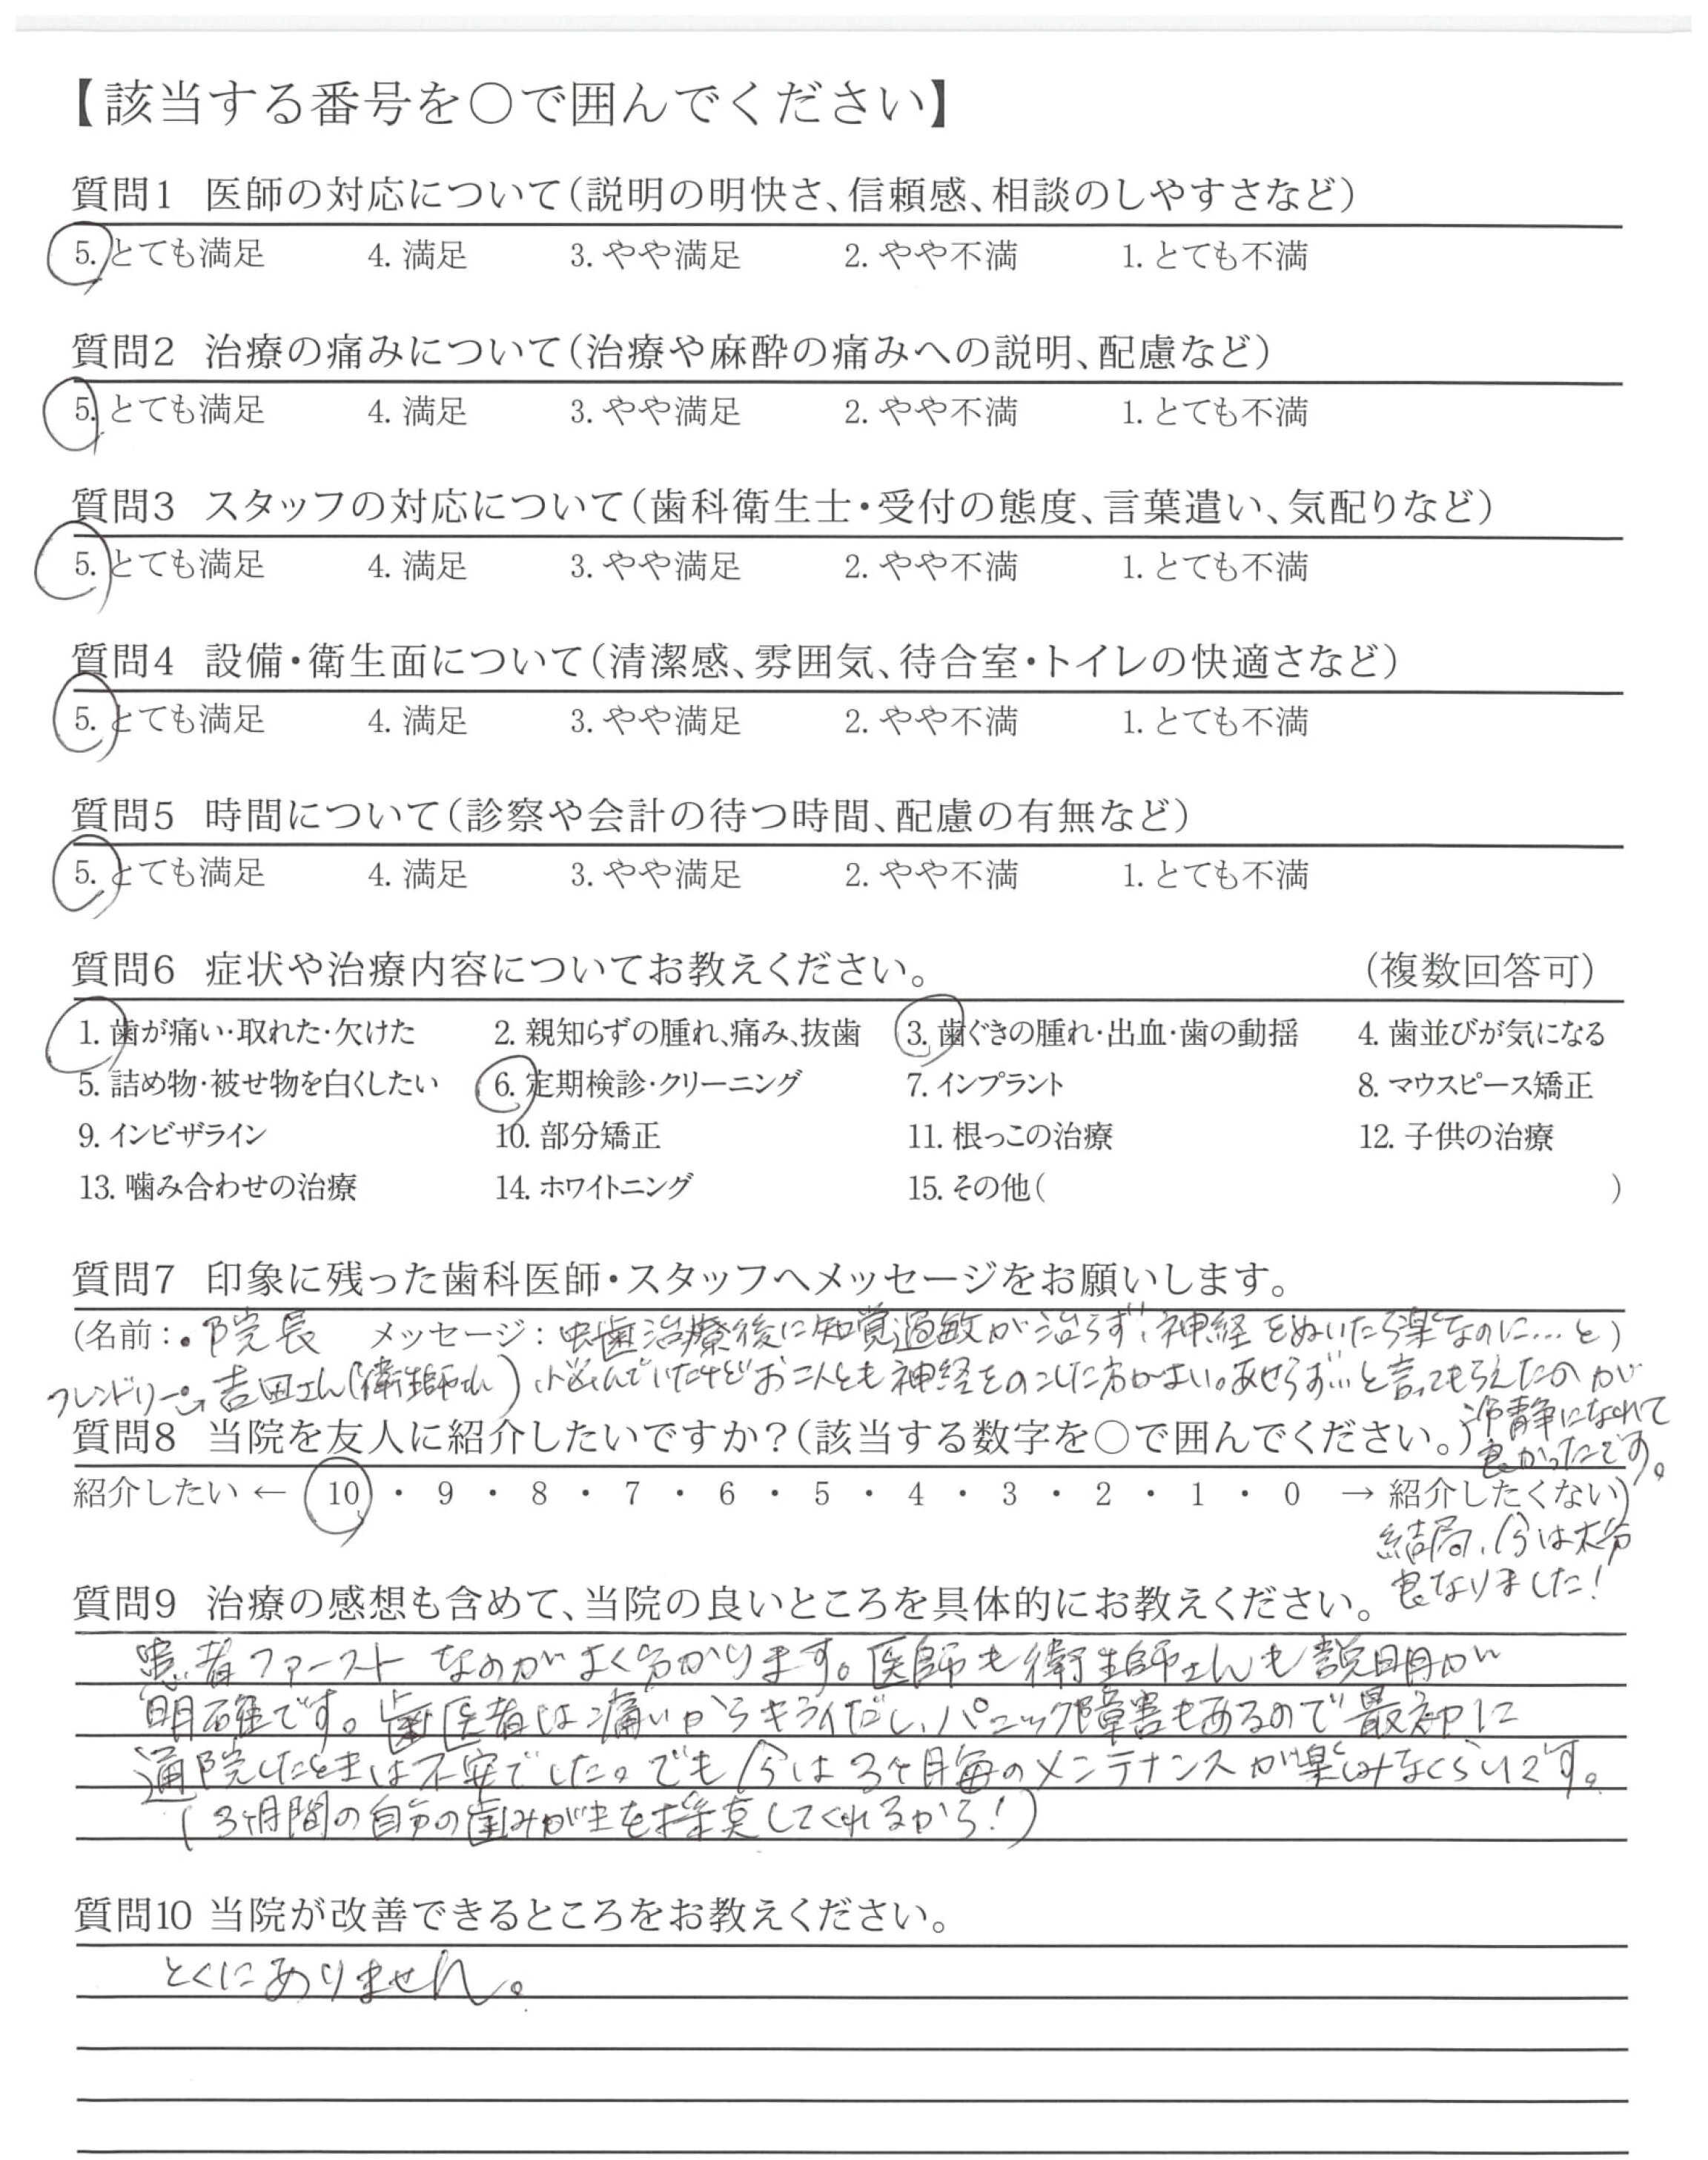 【該当する番号を○で囲んでください】
質問1 医師の対応について(説明の明快さ、信頼感、相談のしやすさなど)
5. とても満足 4. 満足 3. やや満足 2. やや不満 1. とても不満
質問2 治療の痛みについて(治療や麻酔の痛みへの説明、配慮など)
5. とても満足 4. 満足 3. やや満足 2. やや不満 1. とても不満
質問3 スタッフの対応について(歯科衛生士・受付の態度、言葉遣い、気配りなど)
5. とても満足 4. 満足 3. やや満足 2. やや不満 1. とても不満
質問4 設備・衛生面について(清潔感、雰囲気、待合室・トイレの快適さなど)
5. とても満足 4. 満足 3. やや満足 2. やや不満 1. とても不満
質問5 時間について(診察や会計の待つ時間、配慮の有無など)
5. とても満足 4. 満足 3. やや満足 2. やや不満 1. とても不満
質問6 症状や治療内容についてお教えください。 (複数回答可)
1. 歯が痛い・取れた・欠けた 2. 親知らずの腫れ、痛み、抜歯 3. 歯ぐきの腫れ・出血・歯の動揺 4. 歯並びが気になる
5. 詰め物・被せ物を白くしたい 6. 定期検診・クリーニング 7. インプラント 8. マウスピース矯正
9. インビザライン 10. 部分矯正 11. 根っこの治療 12. 子供の治療
13. 噛み合わせの治療 14. ホワイトニング 15. その他( )
質問7 印象に残った歯科医師・スタッフへメッセージをお願いします。
(名前:・院長 メッセージ:虫歯治療後に知覚過敏が治らず、神経をぬいたら楽なのに…と)
フレンドリー 吉田さん(衛生師さん) 悩んでいたけどお二人とも神経をのこした方がよい。あせらず…と言ってもらえたのが
冷静になれて
良かったです。
質問8 当院を友人に紹介したいですか?(該当する数字を○で囲んでください。)
紹介したい ← 10 ・ 9 ・ 8 ・ 7 ・ 6 ・ 5 ・ 4 ・ 3 ・ 2 ・ 1 ・ 0 → 紹介したくない)
結局、今は大分
良なりました!
質問9 治療の感想も含めて、当院の良いところを具体的にお教えください。
患者ファーストなのがよく分かります。医師も衛生師さんも説明が
明確です。歯医者は痛いからキライだし、パニック障害もあるので最初に
通院したときは不安でした。でも今は3ヶ月毎のメンテナンスが楽しみなくらいです。
(3ヶ月間の自分の歯みがきを採点してくれるから!)
質問10 当院が改善できるところをお教えください。
とくにありません。